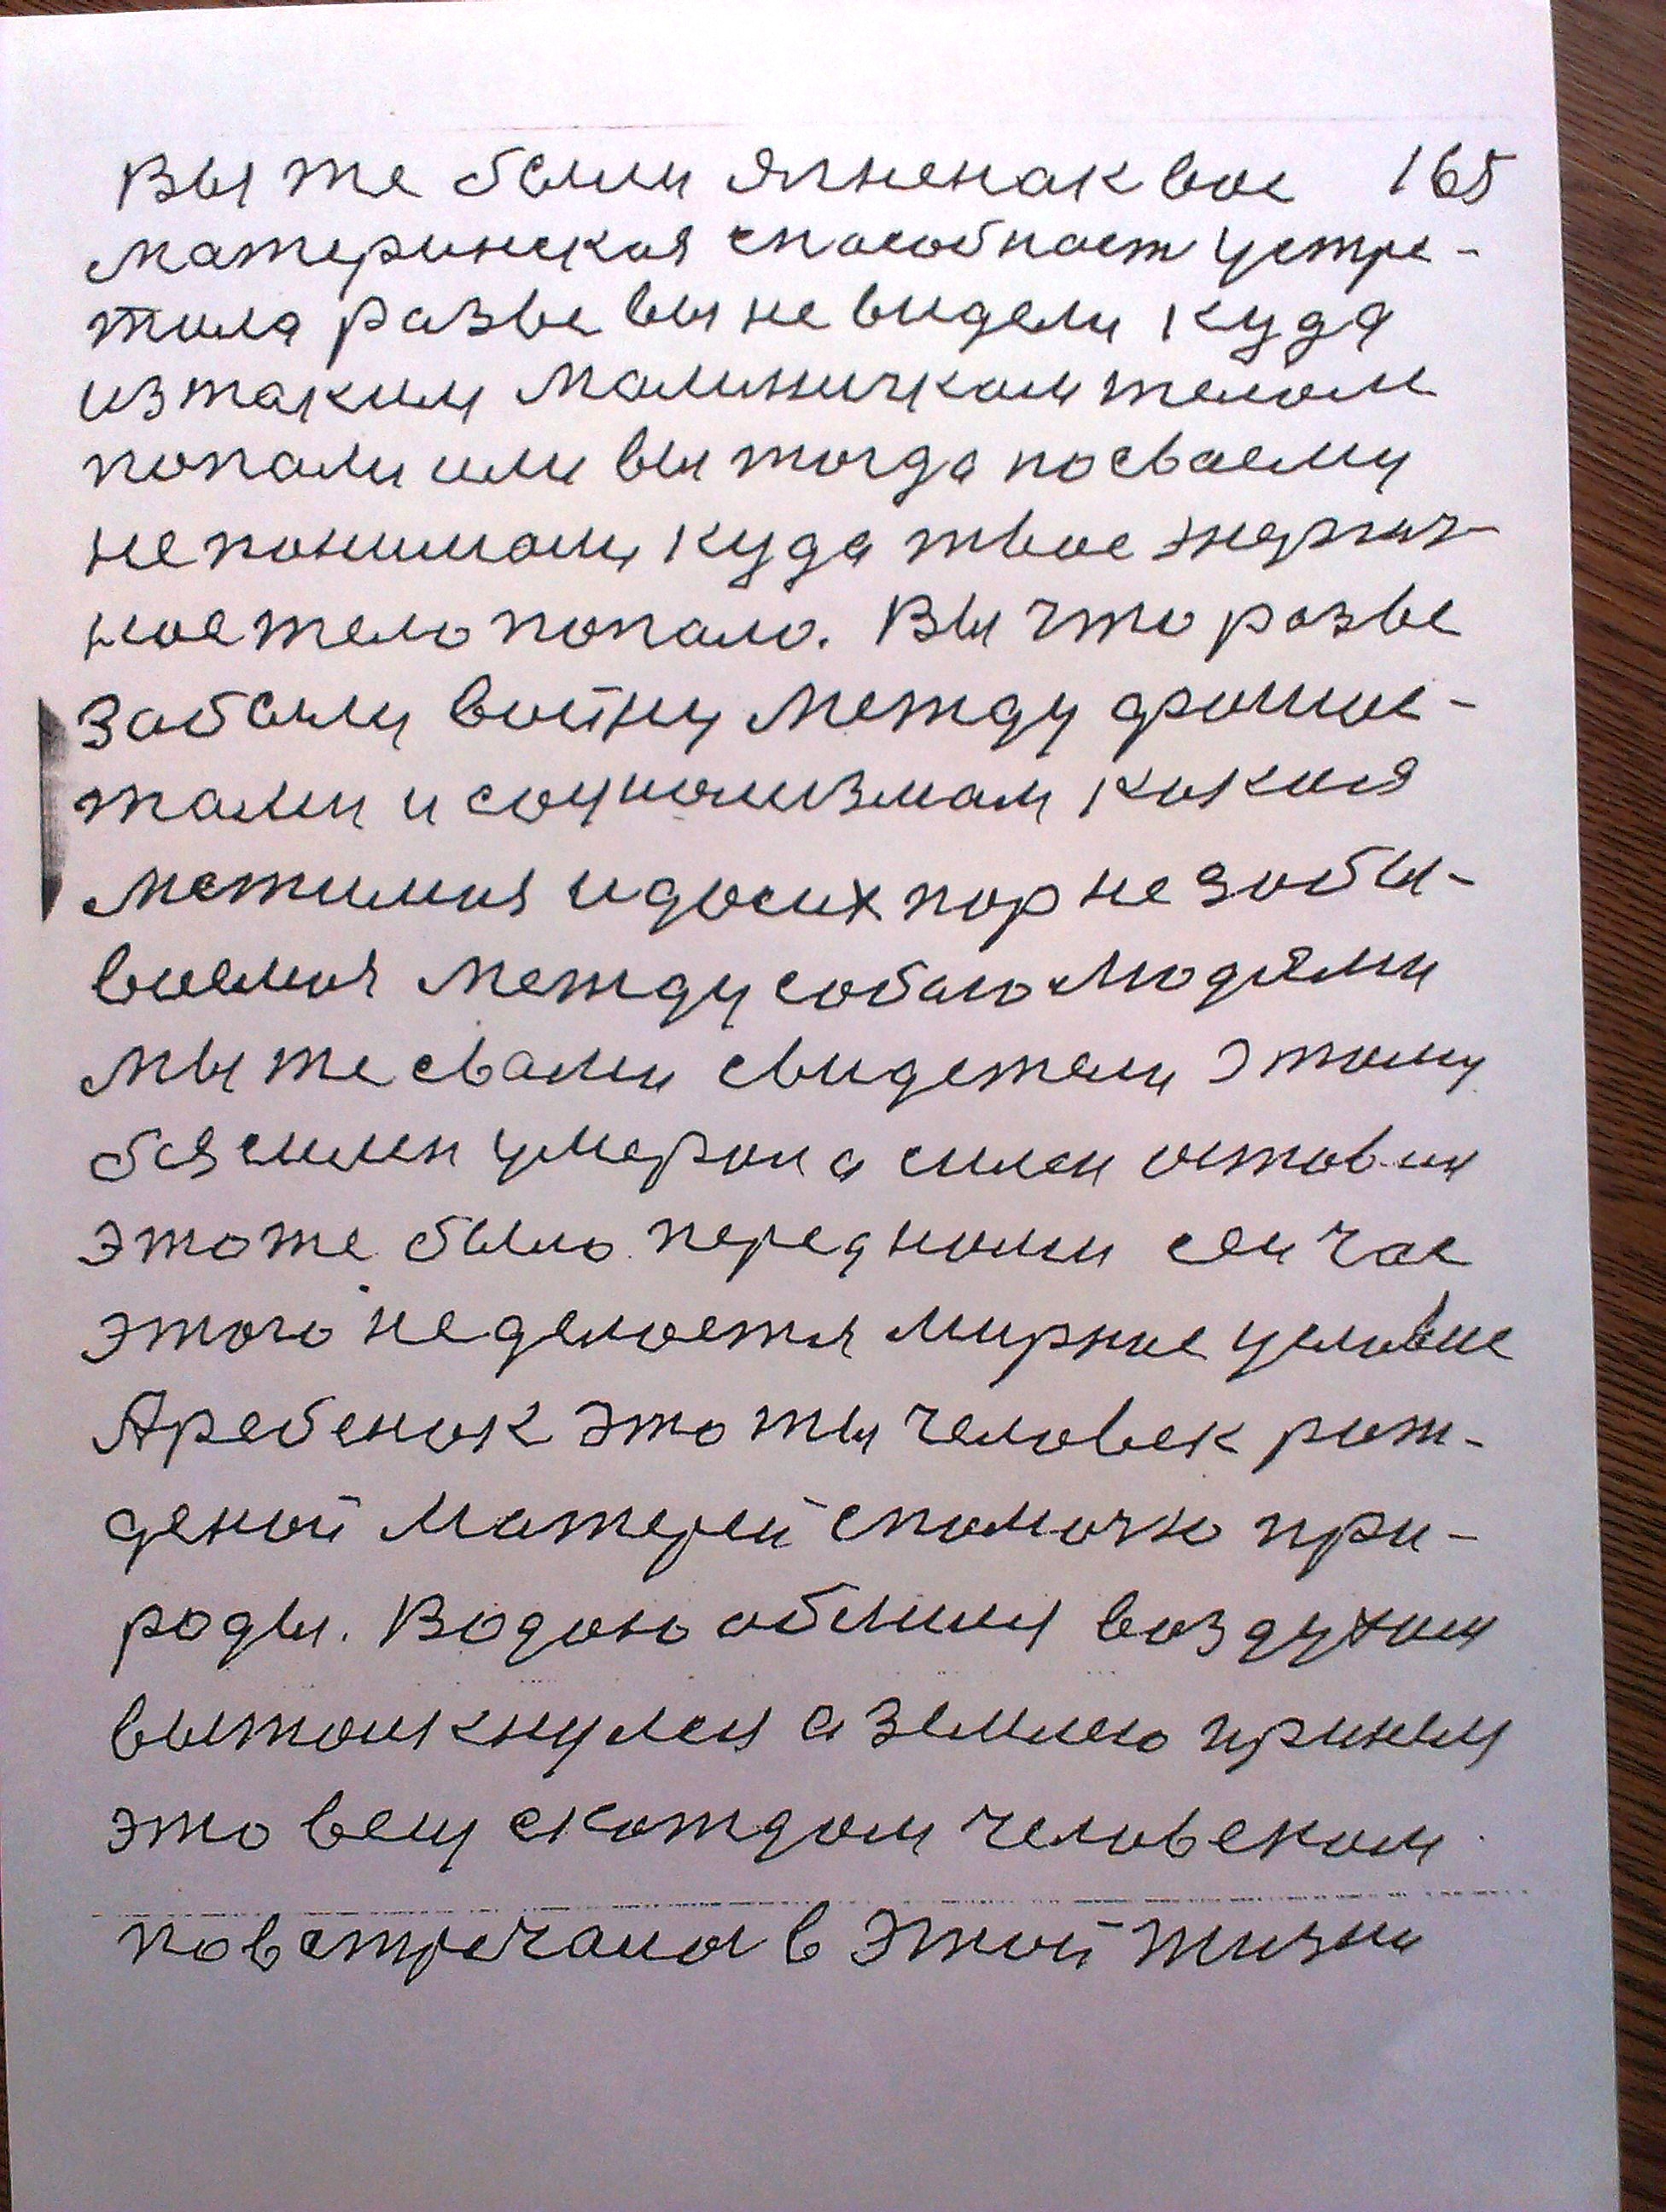 Вы же были ягненак вас 165
материнская способнаст устре-
тила разве вы не видели куда
из таким малиничкам телом
попали или вы тогда по сваему
не понимали куда твое энергич-
ное тело попало. Вы что разве
забыли войну между фашис-
тами и социализмам какая
местимия и до сих пор не забы-
ваемая между собаю людями
мы же с вами свидетели этому
бя силен умерои а силен оставии
это же было перед нами сейчас
этого не делается мирные условие
А ребенак это ты человек рож-
деной матерей с помочю при-
роды. Водою обмыли воздухам
вытолкнулся а землею приням
это всем с каждам человекам
повстречалось в этой жизни